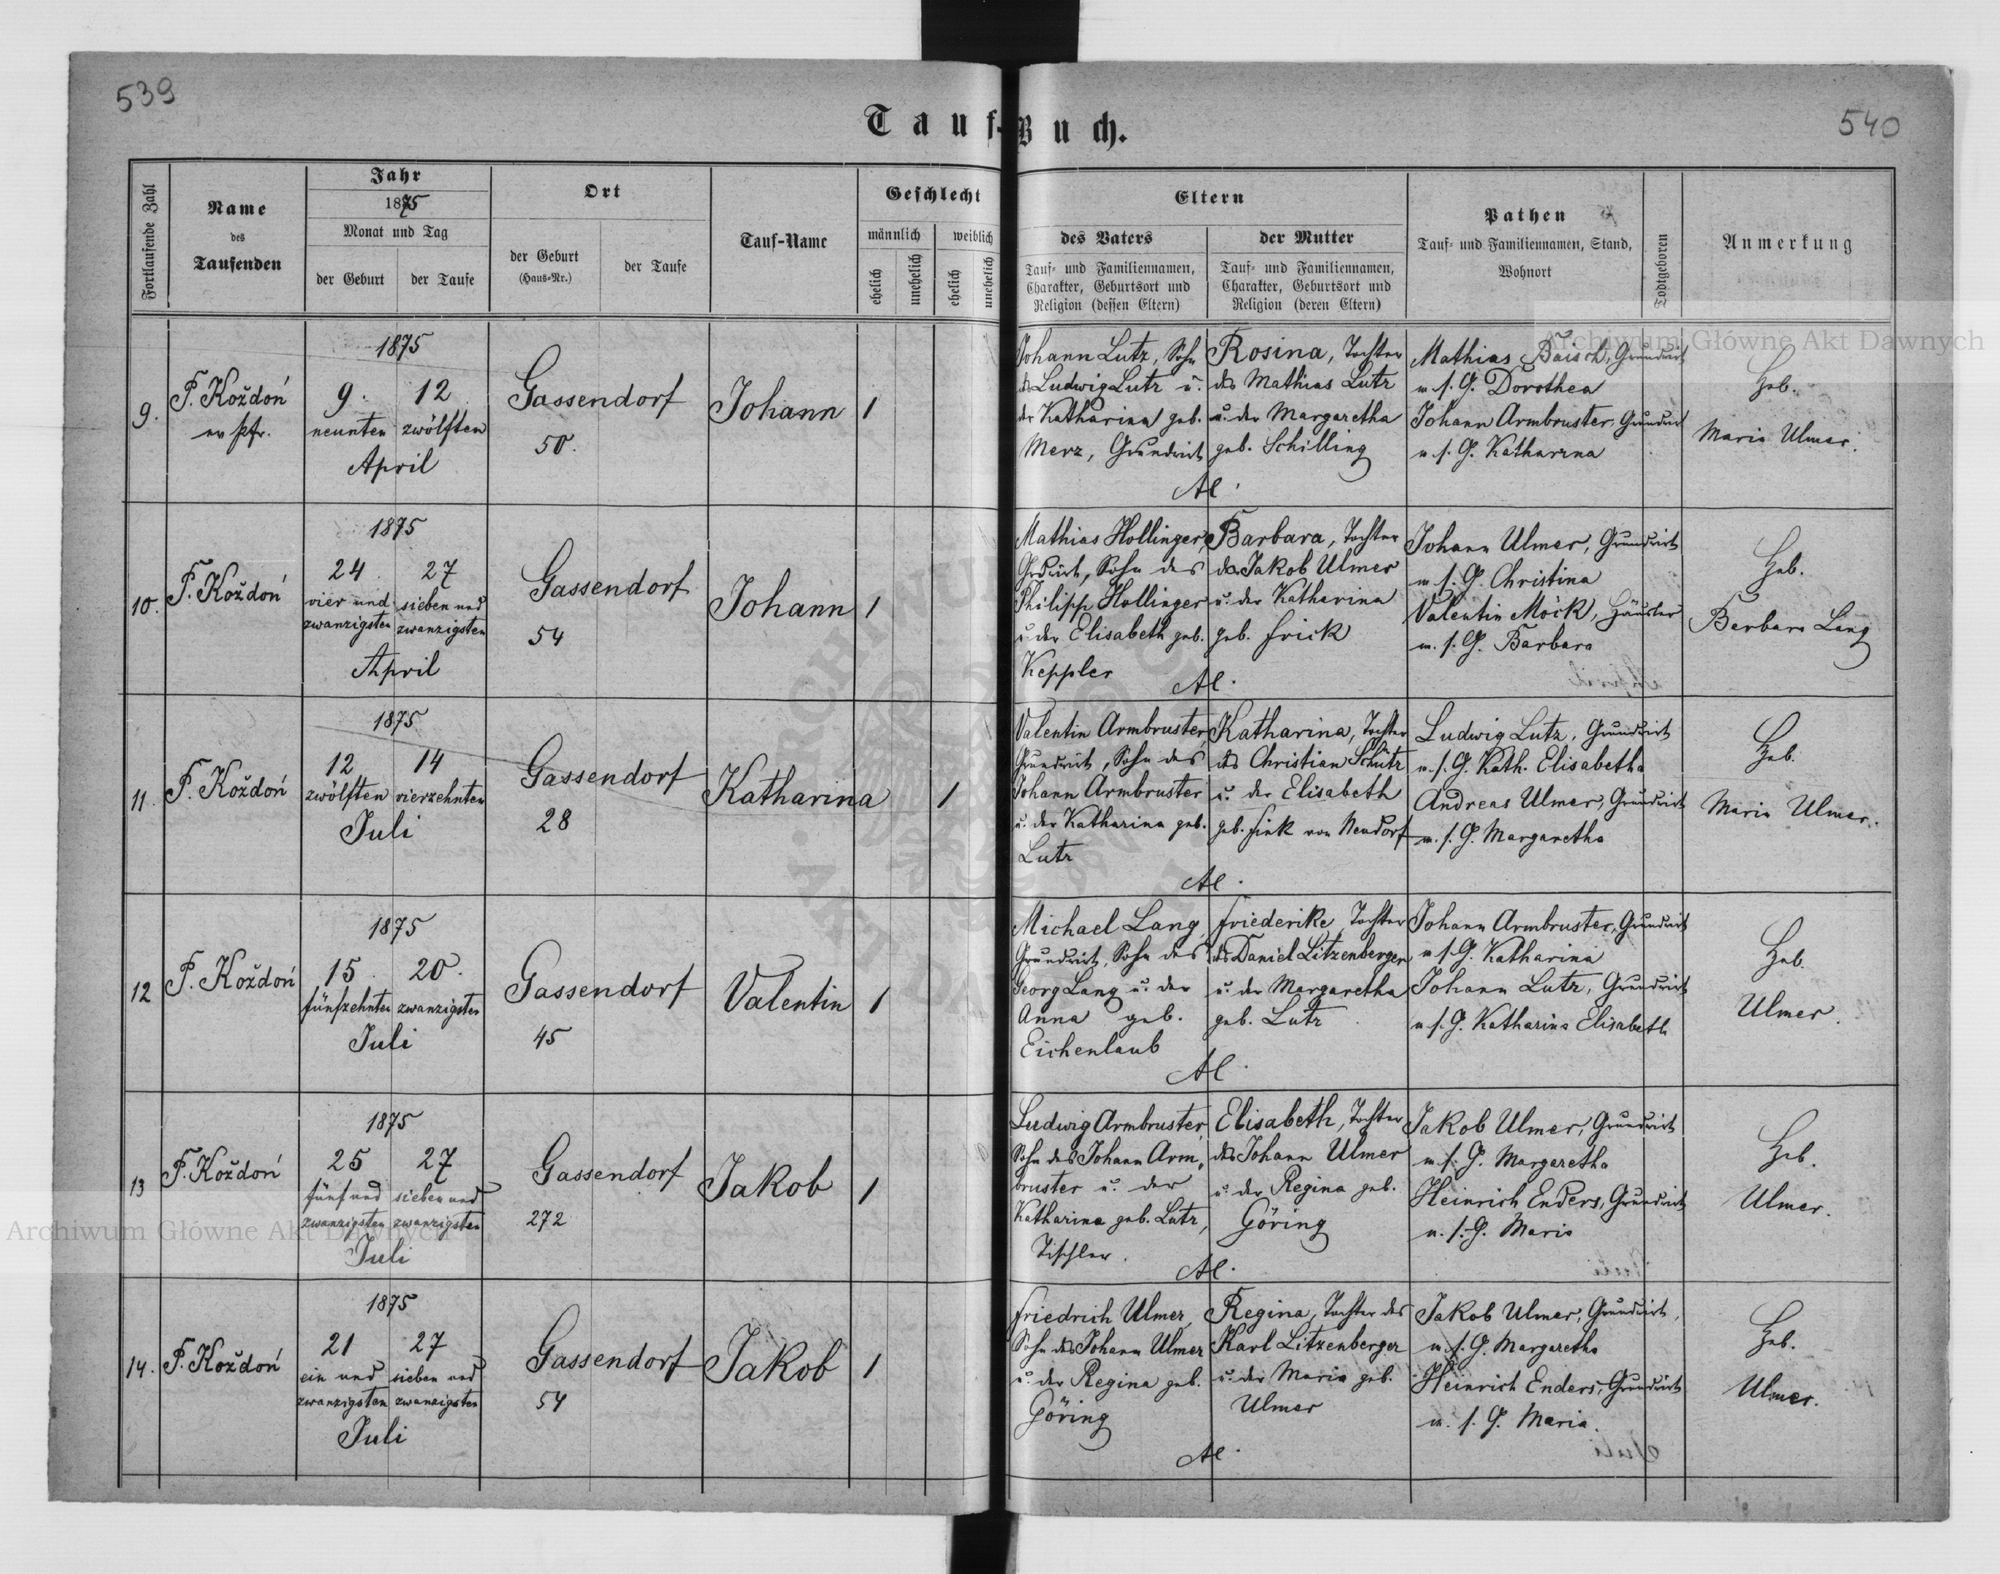 539
540
Tauf-Buch.
Fortlaufende Zahl
Name
des
Taufenden
Jahr
1875
Monat und Tag
der Geburt
der Taufe
Ort
der Geburt
(Haus-Nr.)
der Taufe
Tauf-Name
Geschlecht
männlich
weiblich
ehelich
unehelich
ehelich
unehelich
Eltern
des Vaters
Tauf- und Familiennamen,
Charakter, Geburtsort und
Religion (dessen Eltern)
der Mutter
Tauf- und Familiennamen,
Charakter, Geburtsort und
Religion (deren Eltern)
Pathen
Tauf- und Familiennamen, Stand,
Wohnort
Todtgeboren
Anmerkung
Archiwum Główne Akt Dawnych
9.
P. Koždoń
ev Pfr.
1875
9. 12
neunten zwölften
April
Gassendorf
50.
Johann
1
Johann Lutz, Sohn
des Ludwig Lutz u.
der Katharina geb.
Merz, Grundwirt
Rosina, Tochter
des Mathias Lutz
u. der Margaretha
geb. Schilling
Al.
Mathias Baisch, Grundwirt
u. s. G. Dorothea
Johann Armbruster, Grundwirt
u. s. G. Katharina
Heb.
Maria Ulmer.
10.
P. Koždoń
1875
24. 27
vier und sieben und
zwanzigsten zwanzigsten
April
Gassendorf
54
Johann
1
Mathias Hollinger,
Grdwirt, Sohn des
Philipp Hollinger
u. der Elisabeth geb.
Keppler
Barbara, Tochter
des Jakob Ulmer
u. der Katharina
geb. Frick
Al.
Johann Ulmer, Grundwirt
u. s. G. Christina
Valentin Möck, Häusler
u. s. G. Barbara
Heb.
Barbara Lang
11.
P. Koždoń
1875
12 14
zwölften vierzehnten
Juli
Gassendorf
28
Katharina
1
Valentin Armbruster
Grundwirt, Sohn des
Johann Armbruster
u. der Katharina geb.
Lutz
Katharina, Tochter
des Christian Schütz
u. der Elisabeth
geb. Fink von Neudorf
Al.
Ludwig Lutz, Grundwirt
u. s. G. Kath. Elisabetha
Andreas Ulmer, Grundwirt
u. s. G. Margaretha
Heb.
Maria Ulmer.
12
P. Koždoń
1875
15 20.
fünfzehnten zwanzigsten
Juli
Gassendorf
45
Valentin
1
Michael Lang,
Grundwirt, Sohn des
Georg Lang u. der
Anna geb.
Eichenlaub
Friederike, Tochter
des Daniel Litzenberger
u. der Margaretha
geb. Lutz
Al.
Johann Armbruster, Grundwirt
u. s. G. Katharina
Johann Lutz, Grundwirt
u. s. G. Katharina Elisabeth
Heb.
Ulmer.
13
P. Koždoń
1875
25 27
fünf und sieben und
zwanzigsten zwanzigsten
Juli
Gassendorf
272
Jakob
1
Ludwig Armbruster,
Sohn des Johann Arm-
bruster u. der
Katharina geb. Lutz,
Tischler.
Elisabeth, Tochter
des Johann Ulmer
u. der Regina geb.
Göring
Al.
Jakob Ulmer, Grundwirt
u. s. G. Margaretha
Heinrich Enders, Grundwirt
u. s. G. Maria
Heb.
Ulmer.
Archiwum Główne Akt Dawnych
14.
P. Koždoń
1875
21 27
ein und sieben und
zwanzigsten zwanzigsten
Juli
Gassendorf
54
Jakob
1
Friedrich Ulmer,
Sohn des Johann Ulmer
u. der Regina geb.
Göring
Regina, Tochter des
Karl Litzenberger
u. der Maria geb.
Ulmer
Al.
Jakob Ulmer, Grundwirt,
u. s. G. Margaretha
Heinrich Enders, Grundwirt
u. s. G. Maria.
Heb.
Ulmer.